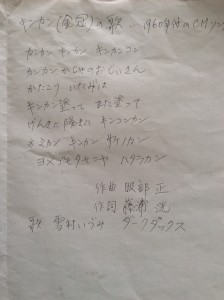 キンカン(金冠)の歌 … 1960年代のCMソング
カンカン キンカン キンカンコン
カンカンかじやのおじいさん
かたこり いたみは
キンカン塗って また塗って
げんきに陽気に キンコンカン
ミカン キンカン サケノカン
ヨメゴモタセニャ ハタラカン
作曲 服部 正
作詞 藤浦 洸
歌 雪村いづみ ダークダックス